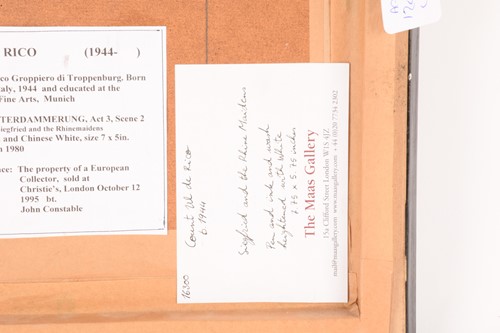 RICO (1944- )
co Groppiero di Troppenburg. Born
taly, 1944 and educated at the
Fine Arts, Munich
TERDAMMERUNG, Act 3, Scene 2
Siegfried and the Rhinemaidens
and Chinese White, size 7 x 5in.
n 1980
ce: The property of a European
Collector, sold at
Christie's, London October 12
1995 bt.
John Constable
16300
Count Ul de Rico
b. 1944
Siegfried and the Rhine Maidens
Pen and ink and wash
heightened with white
x 5.75 inches
The Maas Gallery
15a Clifford Street London W1S 4JZ
mail@maasgallery.com www.maasgallery.com + 44 (0)20 7734 2302